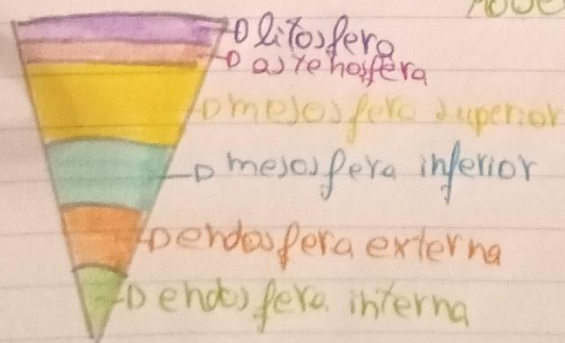 litosfera
astenosfera
mesosfera superior
mesosfera inferior
endosfera externa
endosfera interna